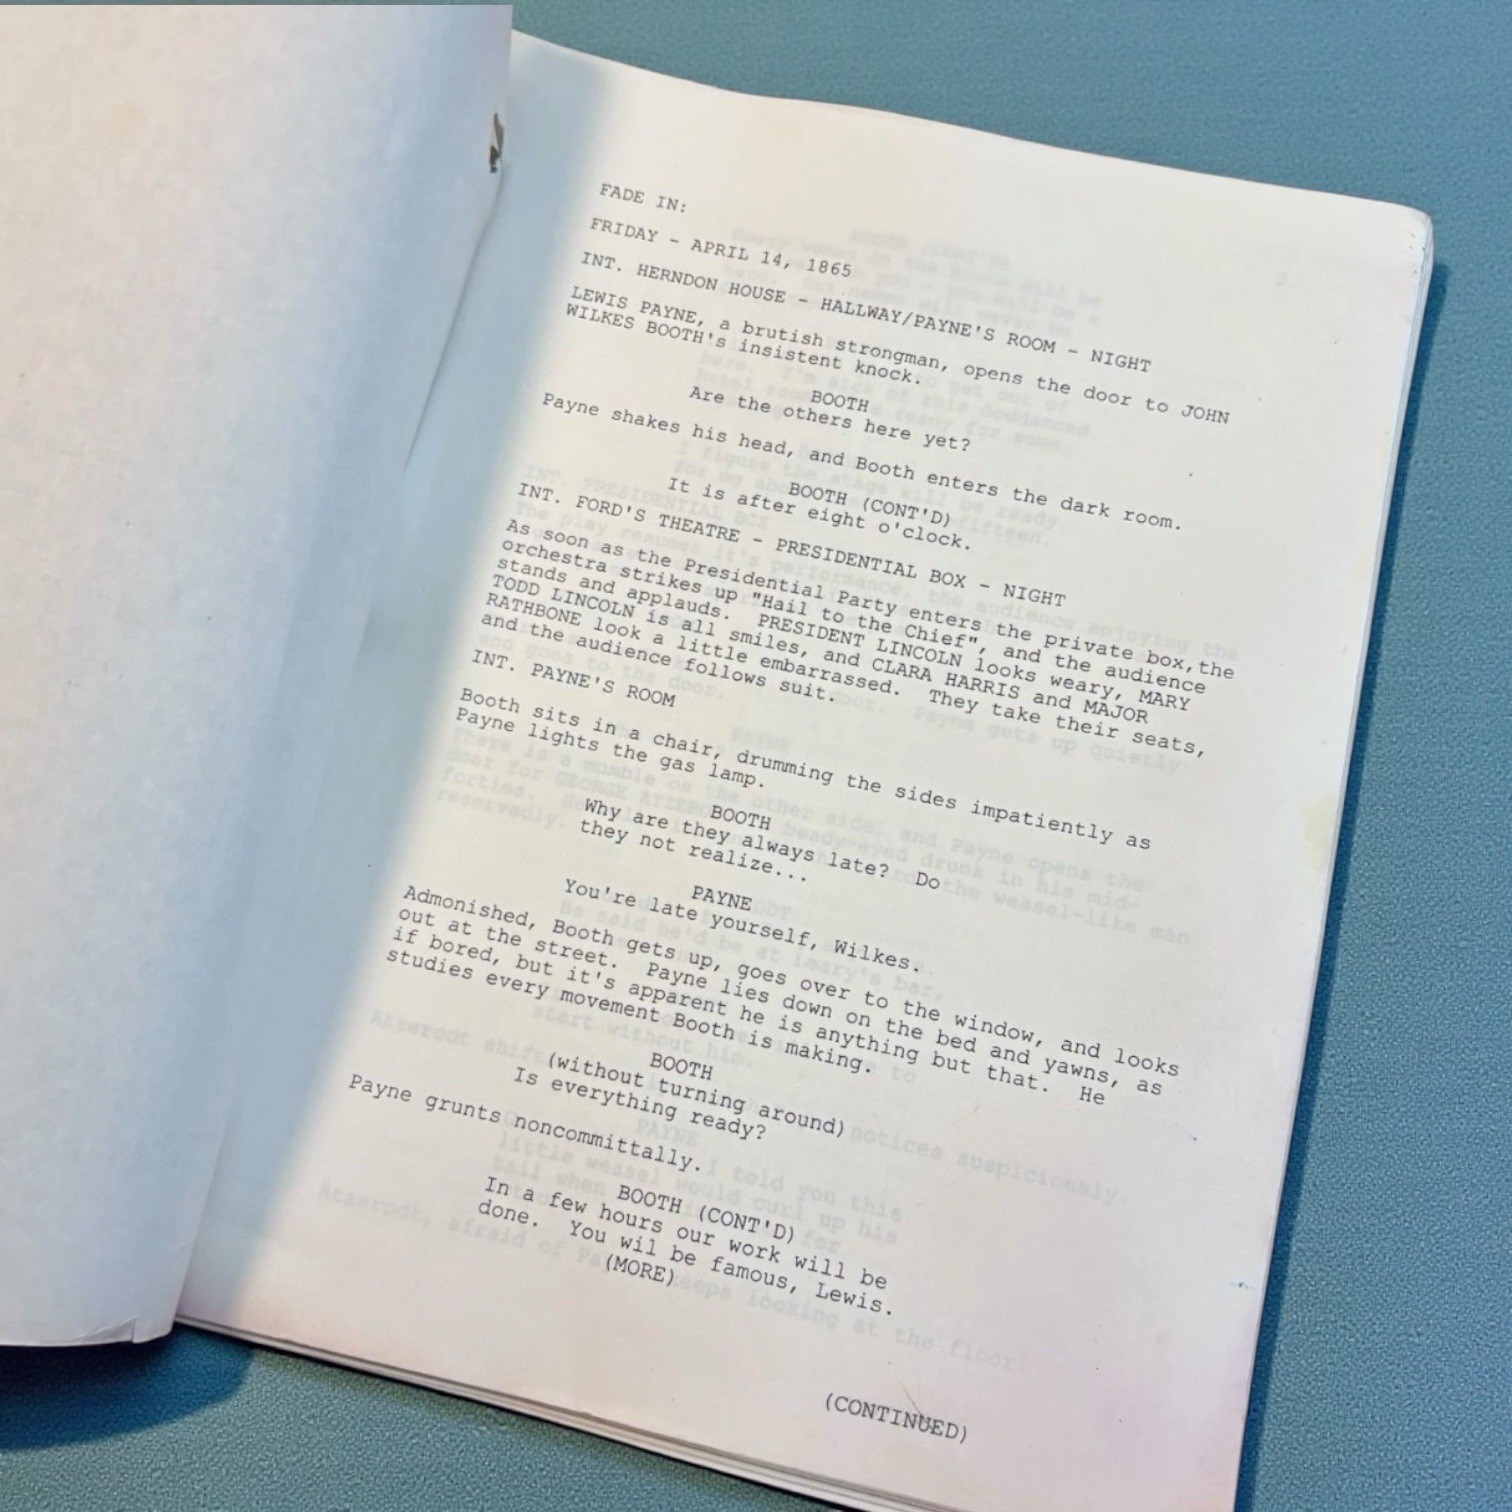 FADE IN:
FRIDAY - APRIL 14, 1865
INT. HERNDON HOUSE - HALLWAY/PAYNE'S ROOM - NIGHT
LEWIS PAYNE, a brutish strongman, opens the door to JOHN
WILKES BOOTH's insistent knock.
BOOTH
Are the others here yet?
Payne shakes his head, and Booth enters the dark room.
BOOTH (CONT'D)
It is after eight o'clock.
INT. FORD'S THEATRE - PRESIDENTIAL BOX - NIGHT
As soon as the Presidential Party enters the private box, the
orchestra strikes up "Hail to the Chief", and the audience
stands and applauds. PRESIDENT LINCOLN looks weary, MARY
TODD LINCOLN is all smiles, and CLARA HARRIS and MAJOR
RATHBONE look a little embarrassed. They take their seats,
and the audience follows suit.
INT. PAYNE'S ROOM
Booth sits in a chair, drumming the sides impatiently as
Payne lights the gas lamp.
BOOTH
Why are they always late? Do
they not realize...
PAYNE
You're late yourself, Wilkes.
Admonished, Booth gets up, goes over to the window, and looks
out at the street. Payne lies down on the bed and yawns, as
if bored, but it's apparent he is anything but that. He
studies every movement Booth is making.
BOOTH
(without turning around)
Is everything ready?
Payne grunts noncommittally.
BOOTH (CONT'D)
In a few hours our work will be
done. You wil be famous, Lewis.
(MORE)
(CONTINUED)